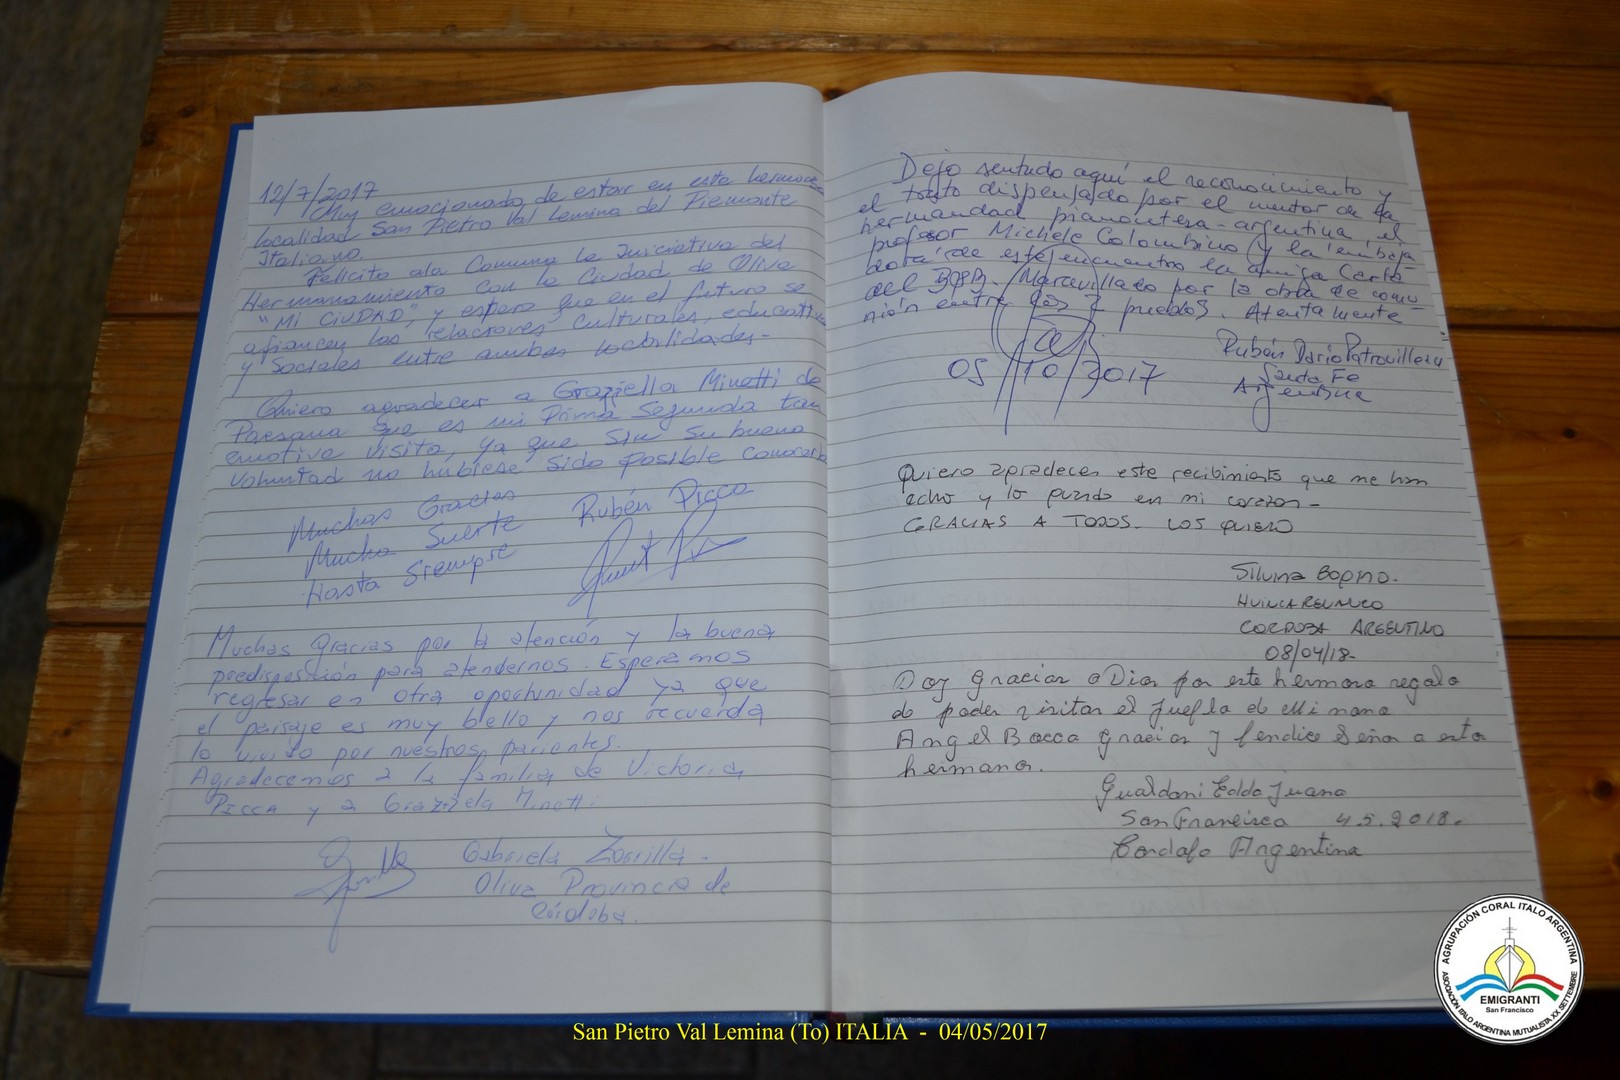 12/7/2017
Muy emocionado de estar en este hermosa
localidad San Pietro Val Lemina del Piemonte
Italiano.
Felicito a la Comuna la Iniciativa del
Hermanamiento con la Ciudad de Oliva
"Mi CiUDAD", y espero que en el futuro se
afiancen las relaciones culturales, educativas
y Sociales entre ambas localidades.-
Quiero agradecer a Graziella Minetti de
Paesana que es mi Prima Segunda tan
emotiva visita, ya que sin su buena
voluntad no hubiese sido posible conocerla
Muchas Gracias
Mucha Suerte
Hasta Siempre
Rubén Picca
Muchas gracias por la atención y la buena
predisposición para atendernos. Esperamos
regresar en otra oportunidad ya que
el paisaje es muy bello y nos recuerda
lo vivido por nuestros parientes.
Agradecemos a la familia de Victoria
PICCA y a Graziela Minetti
Gabriela Zorrilla.
Oliva Provincia de
Córdoba.
Dejo sentado aquí el reconocimiento y
el trato dispensado por el mentor de la
hermandad piamontesa-argentina, el
profesor Michele Colombino y la embaja
dora de este encuentro la amiga Carla
del Maravillado por la obra de comu
nión entre los 2 pueblos. Atentamente
05/10/2017
Rubén Darío
Santa Fe
Argentina
Quiero agradecer este recibimiento que me han
echo y lo guardo en mi corazon-
GRACIAS A TODOS. LOS QUIERO
Silvina
HUINCA RENANCO
CORDOBA ARGENTINA
08/04/18-
Doy gracias a Dios por este hermoso regalo
de poder visitar el Pueblo de Mi nono
Angel Bocca gracias y bendice Señor a estos
hermanos.
Gualdoni Eddo Juana
San Francisco 4.5.2018.
Cordoba Argentina
San Pietro Val Lemina (To) ITALIA - 04/05/2017
AGRUPACIÓN CORAL ITALO ARGENTINA
EMIGRANTI
San Francisco
ASOCIACIÓN ITALO ARGENTINA MUTUALISTA XX SETTEMBRE